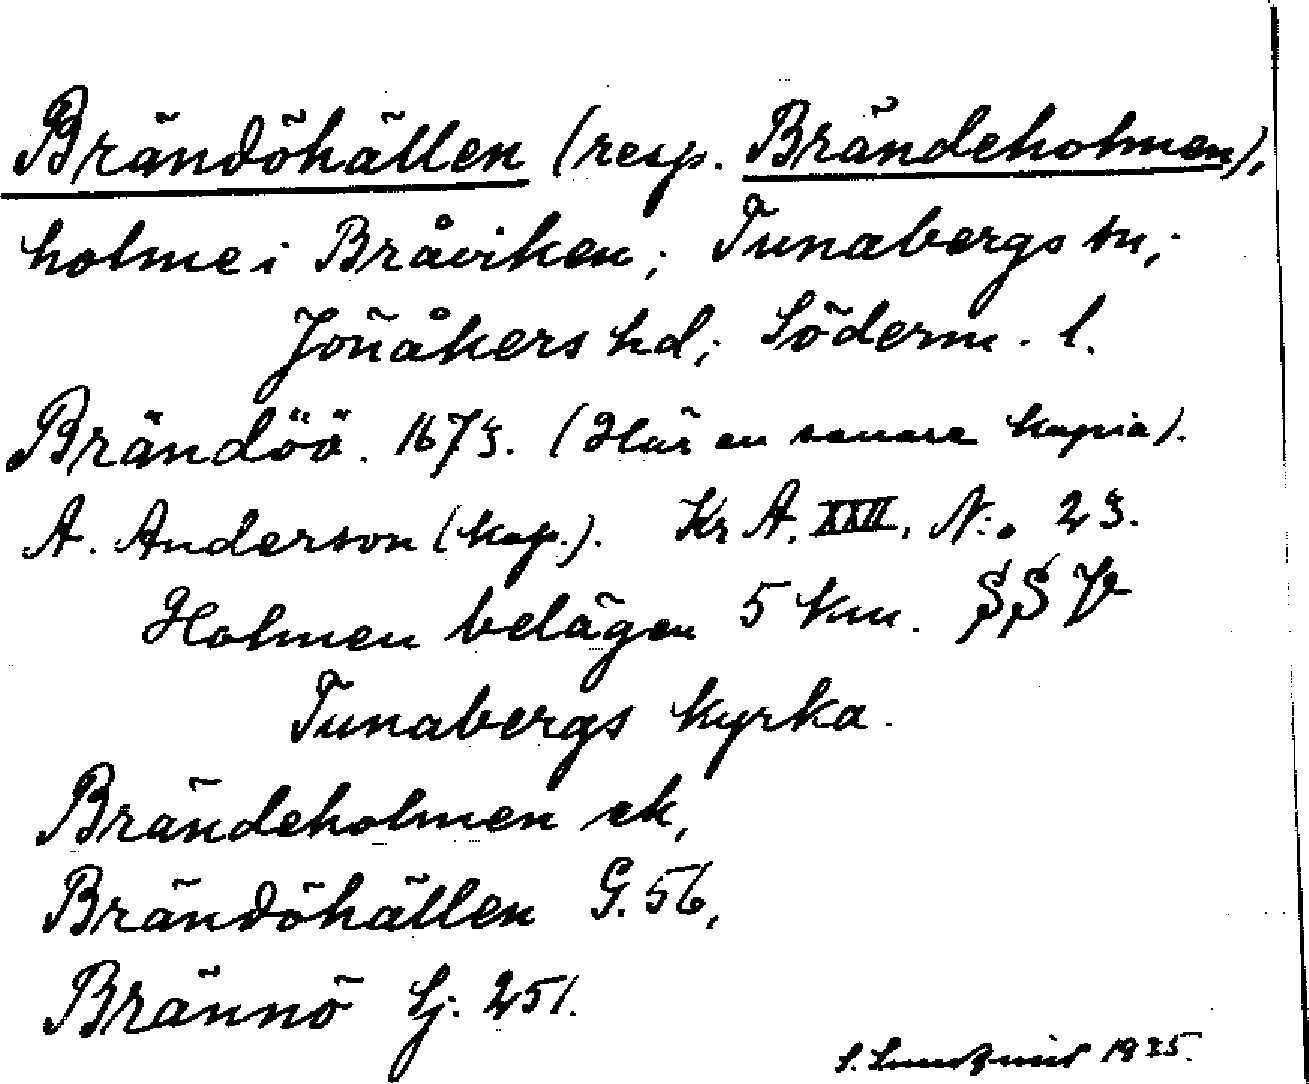 Brändöhällen (resp. Brändeholmen),
holme i Bråviken; Tunabergs sn,;
Jönåkers hd; Söderm. l.
Brändöö. 1673. (Här en senare kopia).
A. Anderson (kop.). Kr A. XXII, N:o 23.
Holmen belägen 5 km. SSV
Tunabergs kyrka.
Brändeholmen ek,
Brändöhällen G. 56,
Brännö Sj. 251.
S. 1935.